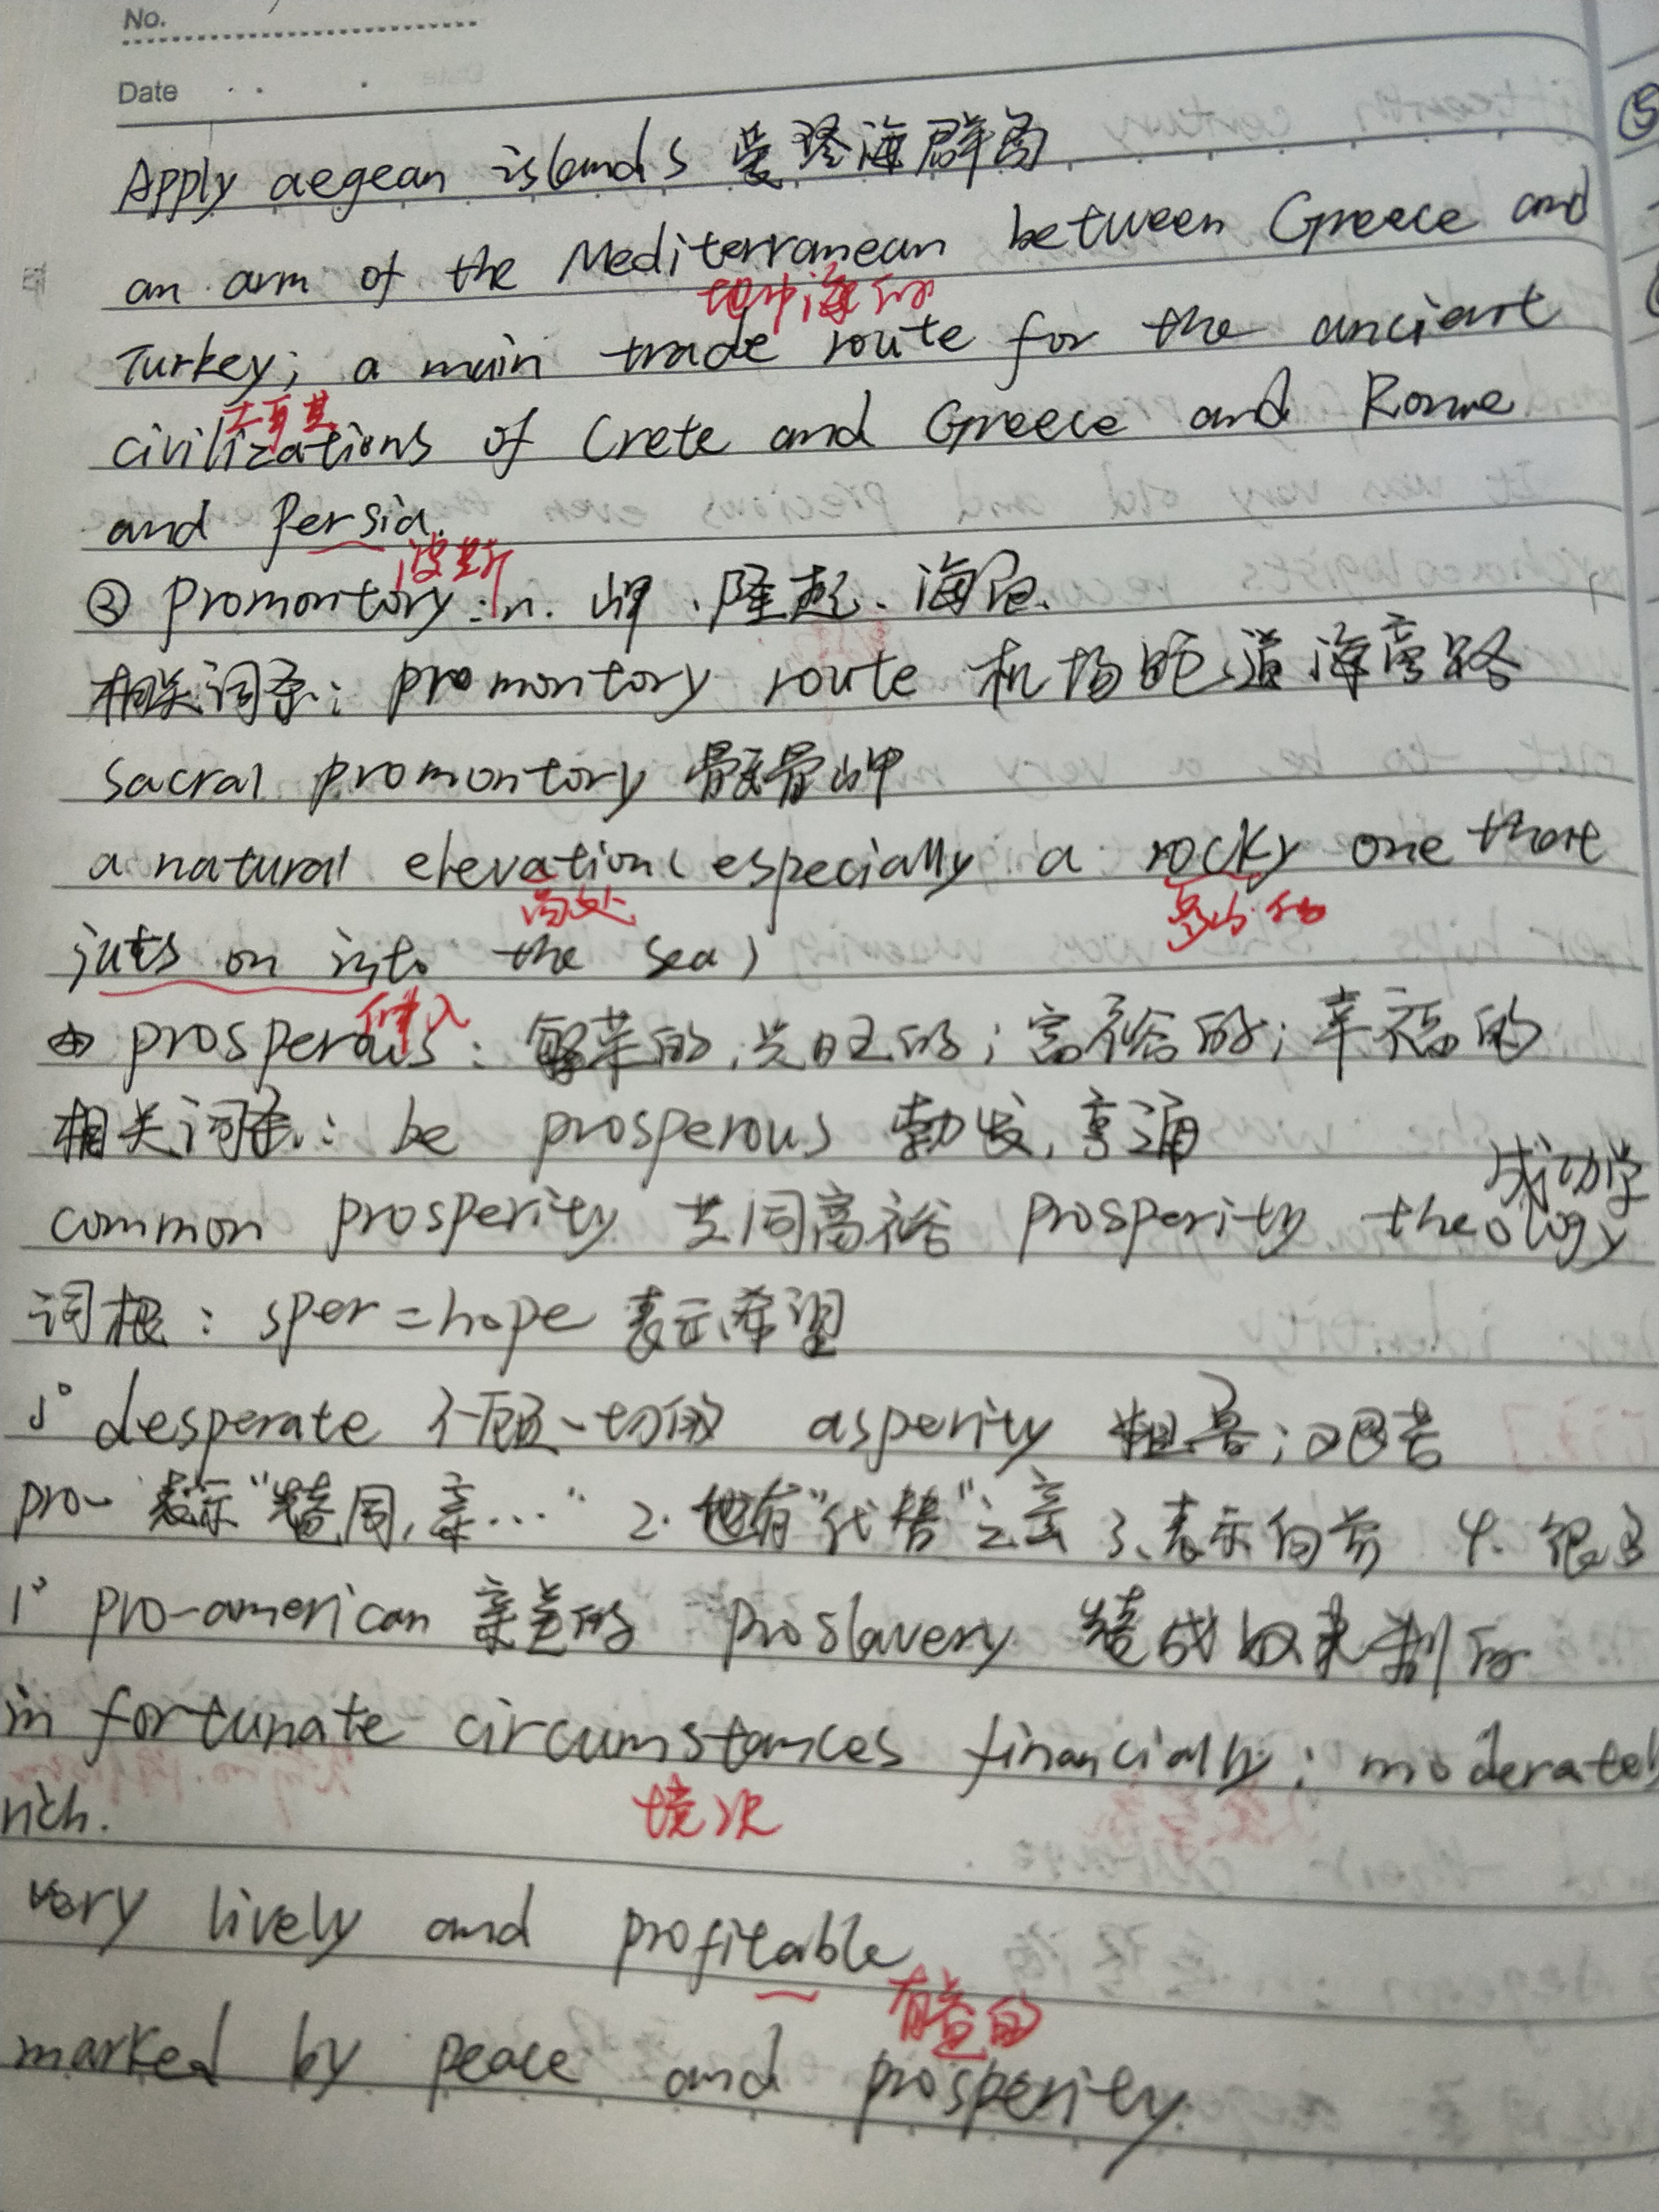 No.
Date
Apply aegean islands 爱琴海群岛
an arm of the Mediterranean between Greece and
地中海的
Turkey; a main trade route for the ancient
土耳其
civilizations of Crete and Greece and Rome
and Persia.
波斯
② promontory: n. 岬、隆起、海角.
相关词条: promontory route 机场跑道海高路
sacral promontory 骶骨岬
a natural elevation (especially a rocky one that
高处
多岩石的
juts on into the sea)
伸入
④ prosperous: 繁荣的,兴旺的; 富裕的; 幸福的
相关词条: be prosperous 勃发,亨通
成功学
common prosperity 共同富裕 prosperity theology
词根: sper = hope 表示希望
1° desperate 不顾一切的 asperity 粗鲁; 艰苦
pro- 表示"赞同,亲…" 2. 也有"代替"之意 3、表示向前 4. 很多
1° pro-american 亲美的 proslavery 赞成奴隶制的
in fortunate circumstances financially; moderately
境况
rich.
very lively and profitable
有益的
marked by peace and prosperity.